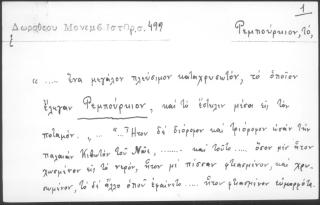 1
Δωροθέου Μονεμβ. Ἱστορ. σ. 499
Ρεμπούρκιον, τό,
“ ..... ἕνα μεγάλον πλεύσιμον κατάχρυσωτόν, τὸ ὁποῖον
ἔλεγαν Ρεμπούρκιον, καὶ τὸ ἔστησιν μέσα εἰς τὸν
ποταμόν. „ .. “..Ἦτον δὲ διόροφον καὶ τριόροφον ὡσὰν τὴν
παλαιὰν Κιβωτὸν τοῦ Νῶε, ........ καὶ τοῦτο .... ὅσον μὲν ἦτον
χωσμένον εἰς τὸ νερόν, ἦτον μὲ πίσσαν φτιασμένον, καὶ χρυ-
σωμένον, τὸ δὲ ἄλλο ὁποῦ ἐφαίνετο .... ἦτον φτιασμένον εὐμορφότα.